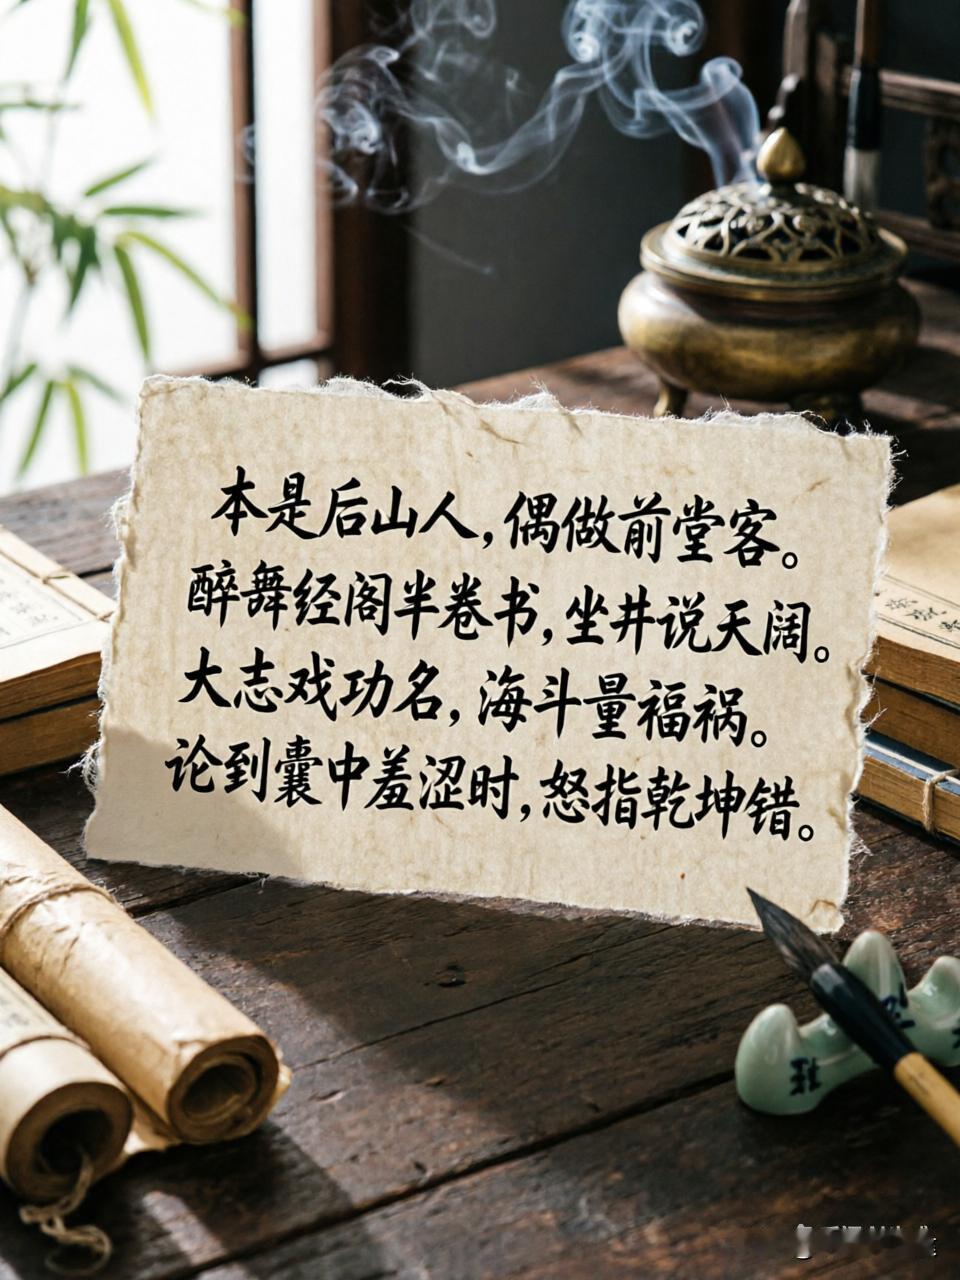 本是后山人，偶做前堂客。
醉舞经阁半卷书，坐井说天阔。
大志戏功名，海斗量福祸。
论到囊中羞涩时，怒指乾坤错。